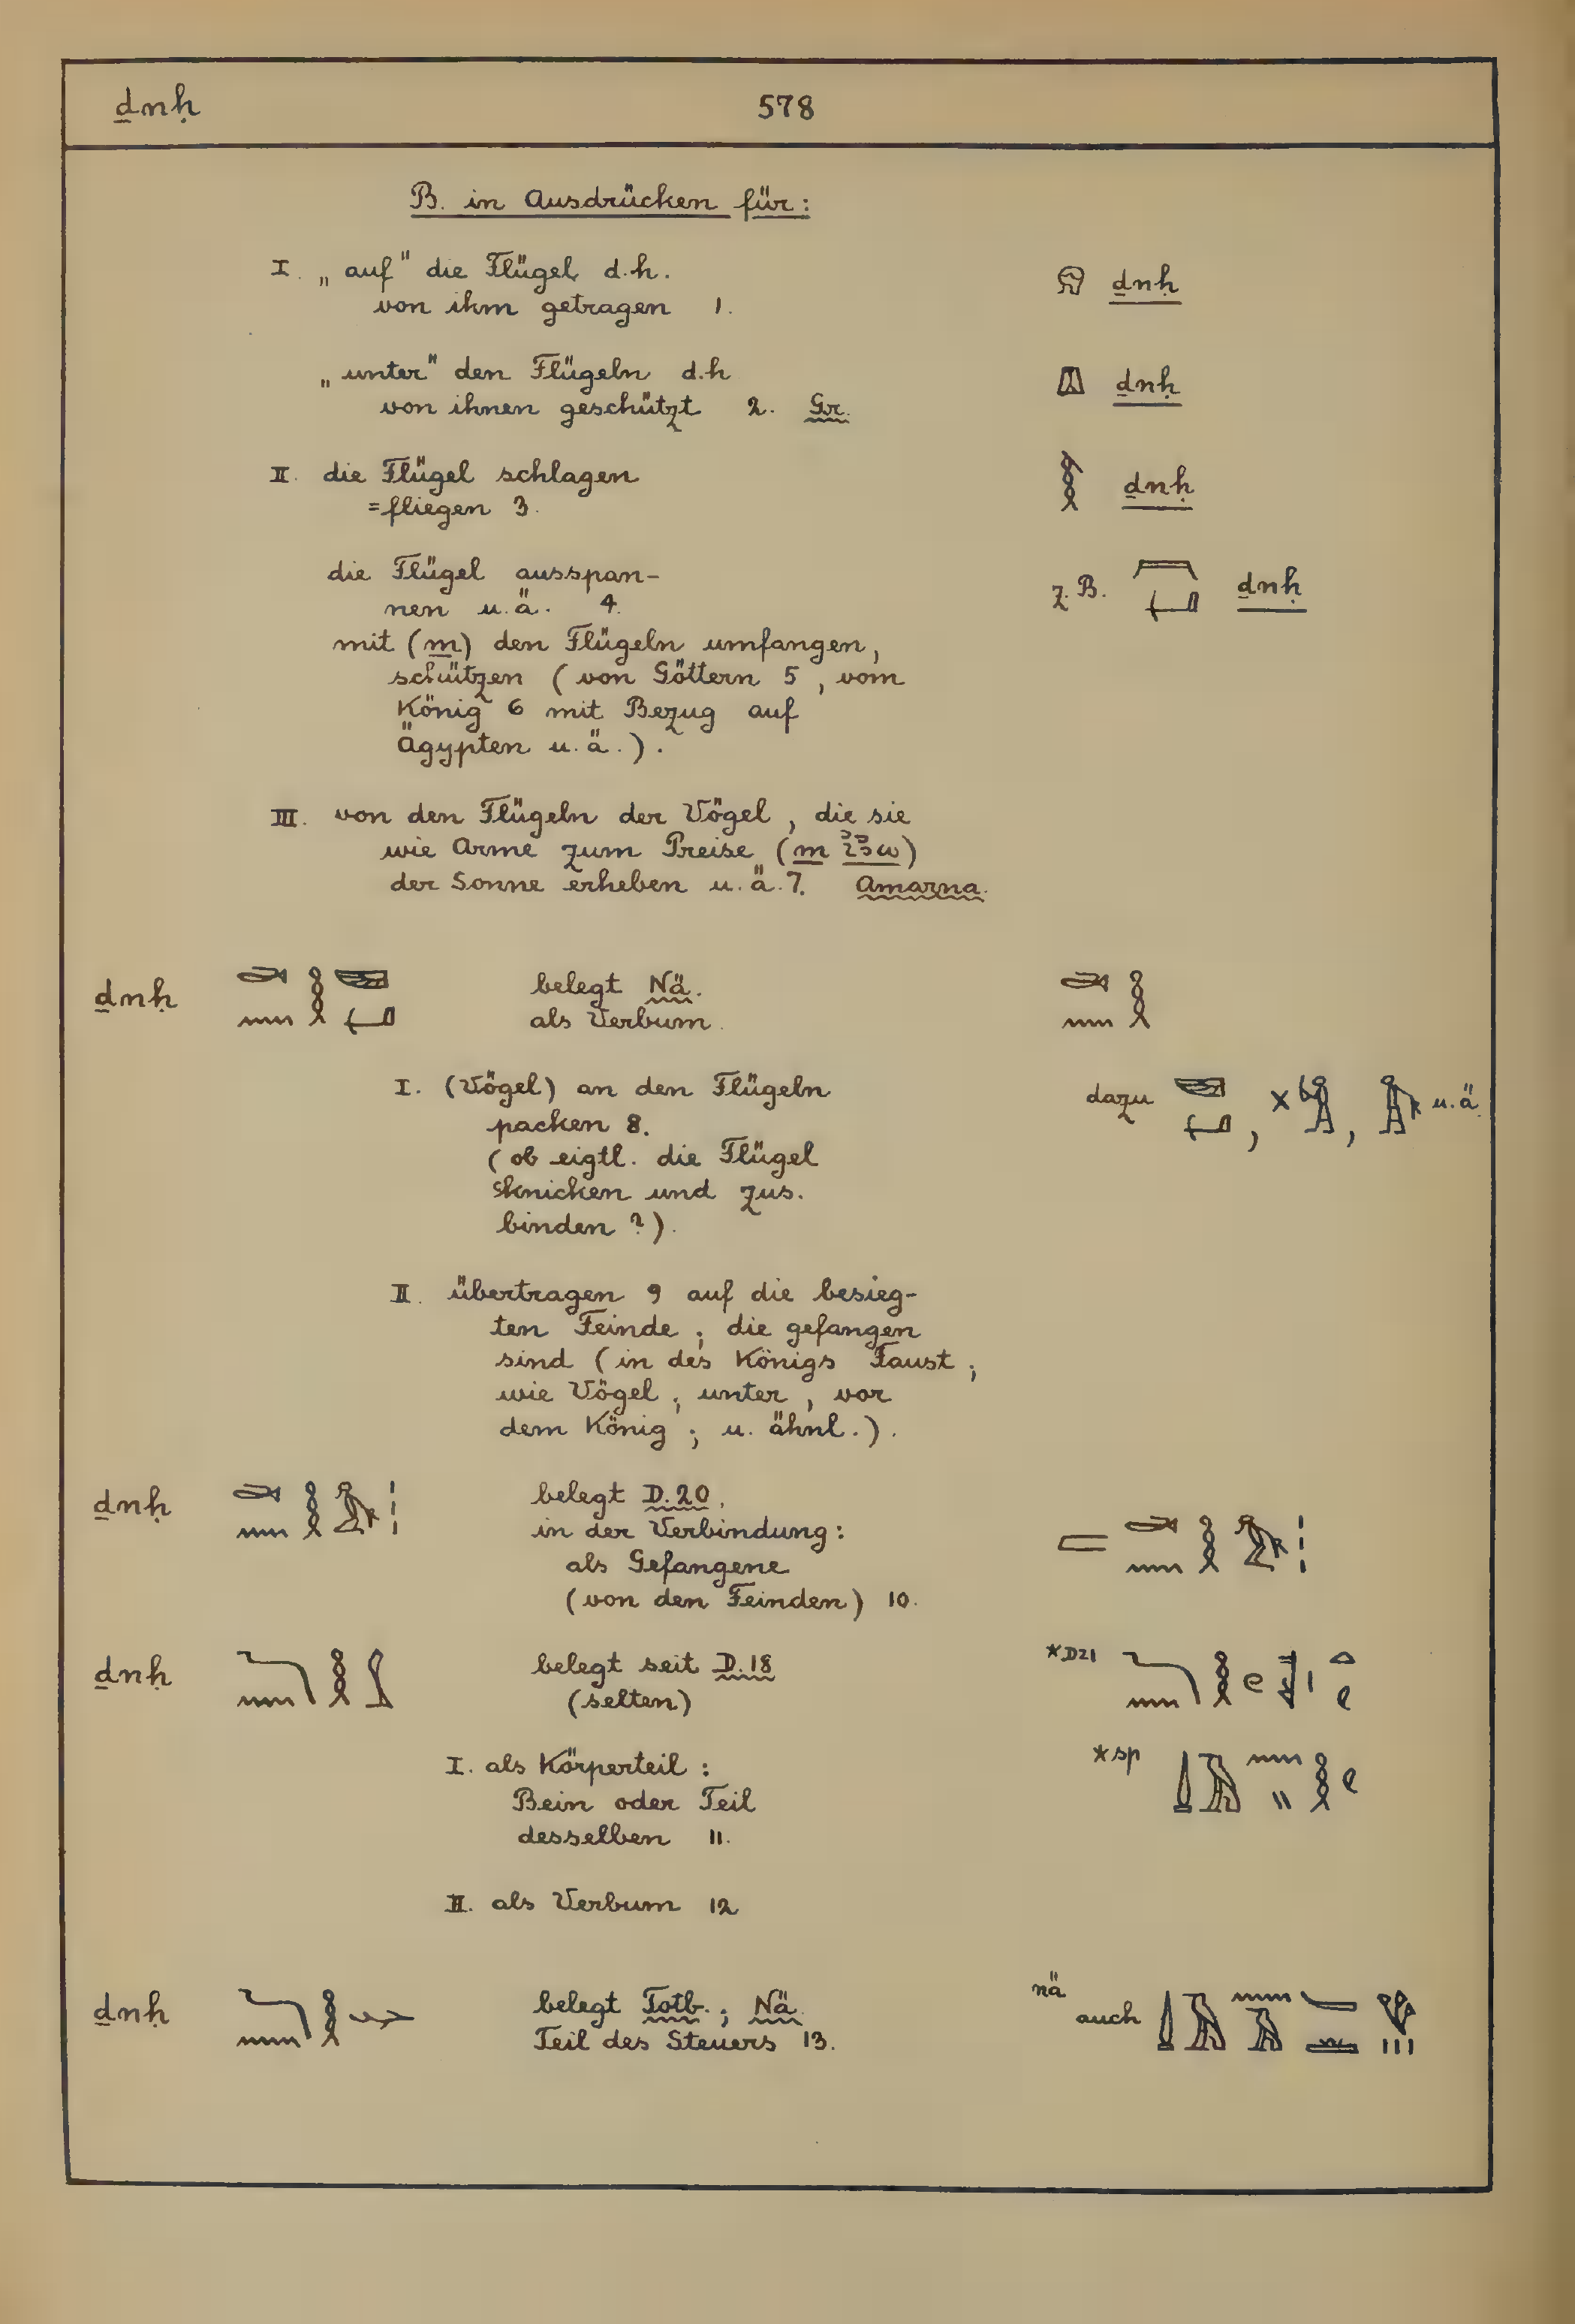 ḏnḥ 578
B. in Ausdrücken für:
I. „auf" die Flügel d.h. ḏnḥ
von ihm getragen 1.
„unter" den Flügeln d.h ḏnḥ
von ihnen geschützt 2. Gr.
II. die Flügel schlagen ḏnḥ
=fliegen 3.
die Flügel ausspan- z.B. ḏnḥ
nen u.ä. 4.
mit (m) den Flügeln umfangen,
schützen (von Göttern 5, vom
König 6 mit Bezug auf
Ägypten u.ä.).
III. von den Flügeln der Vögel, die sie
wie Arme zum Preise (m)
der Sonne erheben u.ä. 7. Amarna.
ḏnḥ belegt Nä.
als Verbum.
I. (Vögel) an den Flügeln dazu , , u.ä.
packen 8.
(ob eigtl. die Flügel
knicken und zus.
binden ?).
II. übertragen 9 auf die besieg-
ten Feinde; die gefangen
sind (in des Königs Faust;
wie Vögel; unter, vor
dem König; u. ähnl.).
ḏnḥ belegt D.20.
in der Verbindung:
als Gefangene
(von den Feinden) 10.
ḏnḥ belegt seit D.18 *D21
(selten)
I. als Körperteil: *Sp
Bein oder Teil
desselben 11.
II. als Verbum 12
ḏnḥ belegt Totb.; Nä. nä auch
Teil des Steuers 13.